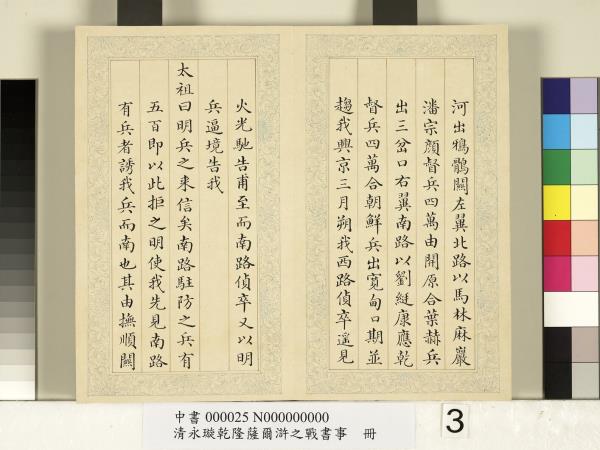 河出鴉鶻關左翼北路以馬林麻巖
潘宗顏督兵四萬由開原合葉赫兵
出三岔口右翼南路以劉綎康應乾
督兵四萬合朝鮮兵出寬甸口期並
趨我興京三月朔我西路偵卒遥見
火光馳告甫至而南路偵卒又以明
兵逼境告我
太祖曰明兵之来信矣南路駐防之兵有
五百即以此拒之明使我先見南路
有兵者誘我兵而南也其由撫順關
中書 000025 N000000000
清永璇乾隆薩爾滸之戰書事 冊
3